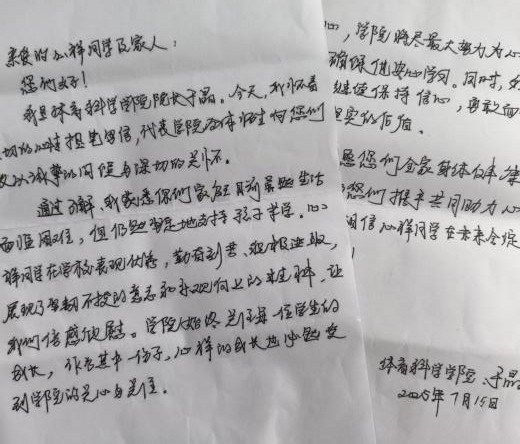 亲爱的心祥同学及家人：
您们好！
我是体育科学学院院长于晶。今天，我怀着
切的心情提笔写信，代表学院全体师生向您们
致以诚挚的问候与深切的关怀。
通过了解，我获悉你们家庭目前虽然生活
面临困难，但仍然坚定地支持孩子求学。心
祥同学在学校表现优秀，勤奋刻苦、积极进取，
展现了坚韧不拔的意志和乐观向上的精神，让
我们倍感欣慰。学院始终关注每一位学生的
成长，作为其中一份子，心祥的成长也必然受
到学院的关心与关注。
心，学院将尽最大努力为心
确保他安心学习。同时，也
继续保持信心，勇敢面
现实的价值。
愿您们全家身体健康
您们携手共同助力心
相信心祥同学在未来会绽
体育科学学院 于晶
2025年7月15日